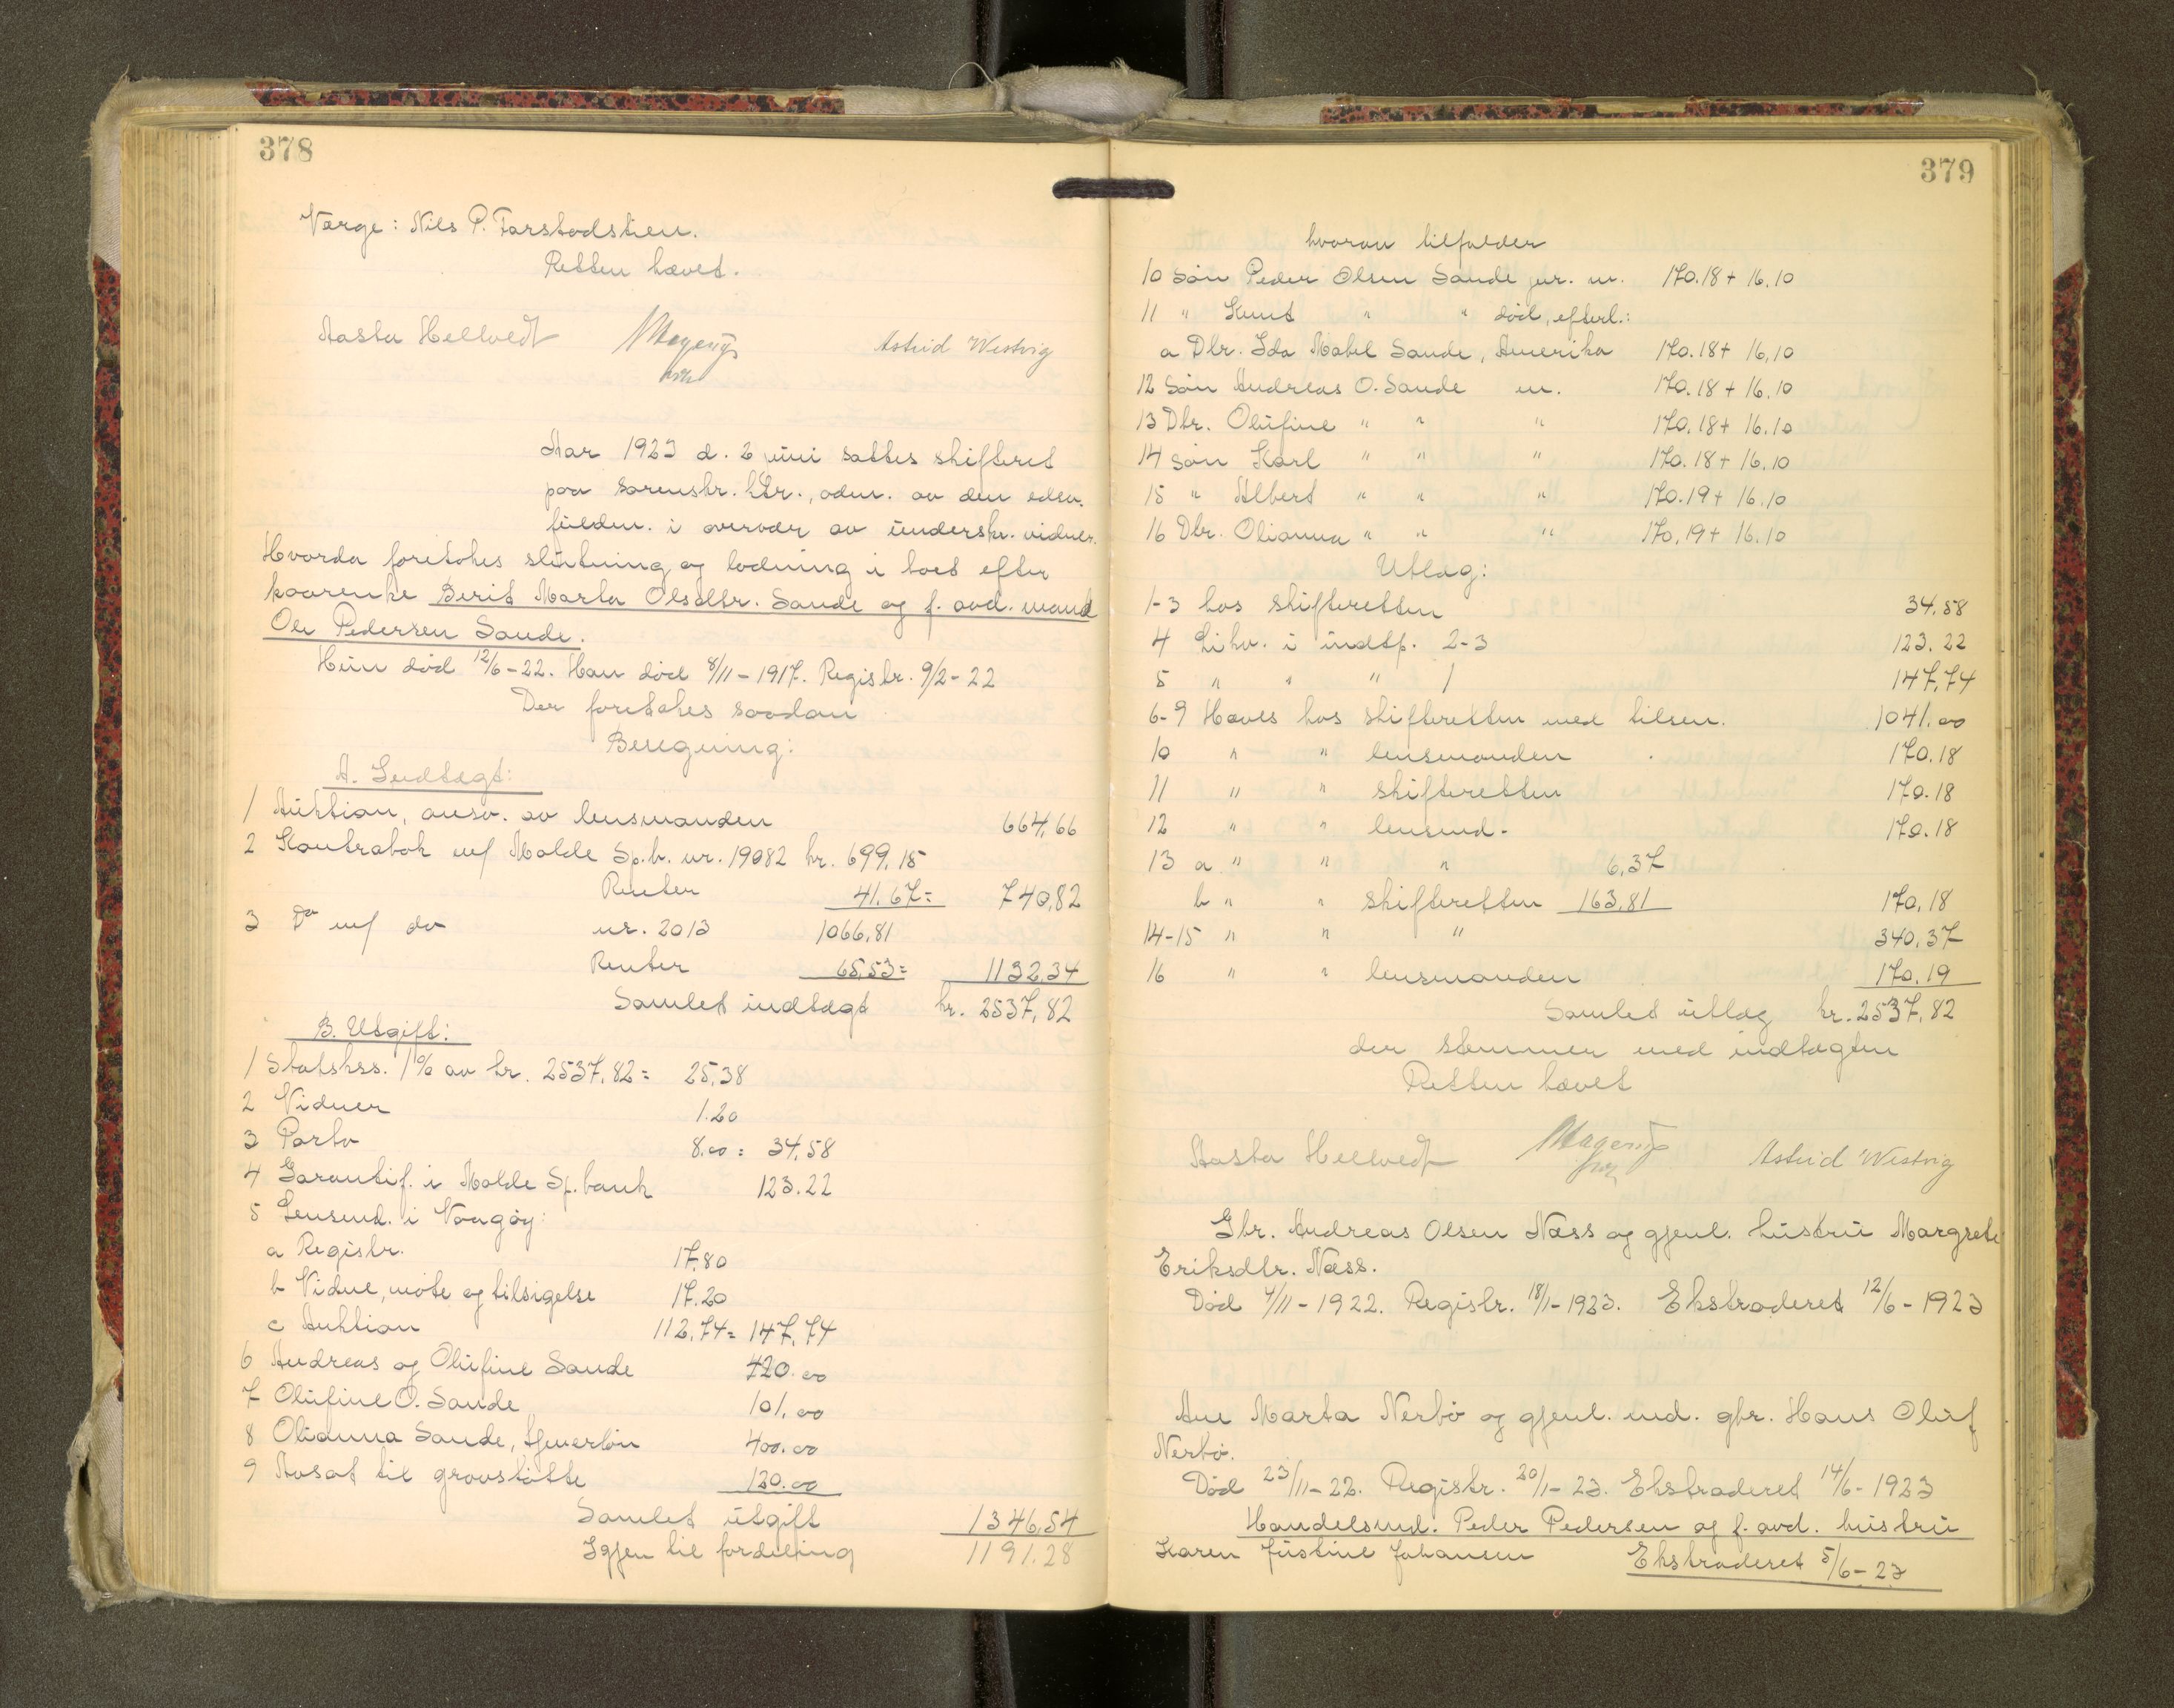 378
Værge: Nils P. Farstadstien.
Retten hævet.
Aasta Hellvedt Astrid Westvig
Aar 1923 d. 2 juni sattes skifteret
paa sorenskr. ktr., adm. av den edsv.
fuldm. i overvær av underskr. vidner.
Hvorda foretokes slutning og lodning i boet efter
kaarenke Berit Marta Olsdtr. Sande og f. avd. mand
Ole Pedersen Sande.
Hun død 12/6-22. Han død 8/11-1917. Registr. 9/2-22
Der foretokes saadan
Beregning:
A. Indtægt:
1 Auktion, ansv. av lensmanden 664,66
2 Kontrabok m/ Molde Sp.b. nr. 19082 kr. 699,15
Renter 41.67= 740,82
3 Do m/ do nr. 2013 1066,81
Renter 65,53= 1132,34
Samlet indtægt kr. 2537,82
B. Utgift:
1 Statskss. 1% av kr. 2537,82= 25,38
2 Vidner 1.20
3 Porto 8,00= 34,58
4 Garantif. i Molde Sp.bank 123.22
5 Lensmd. i Vaagøy:
a Registr. 17,80
b Vidne, møte og tilsigelse 17.20
c Auktion 112,74= 147,74
6 Andreas og Olufine Sande 420.00
7 Olufine O. Sande 101,00
8 Olianna Sande, tjenerløn 400.00
9 Avsat til gravstøtte 120.00
Samlet utgift 1346,54
Igjen til fordeling 1191.28
379
hvorav tilfalder
10 Søn Peder Olsen Sande jur. m. 170.18+ 16.10
11 " Knut " " død, efterl.:
a Dtr. Ida Mabel Sande, Amerika 170.18+ 16,10
12 Søn Andreas O. Sande m. 170.18+ 16.10
13 Dtr. Olufine " " " 170.18+ 16.10
14 Søn Karl " " " 170.18+ 16.10
15 " Albert " " " 170.19+ 16.10
16 Dtr. Olianna " " " 170,19+ 16.10
Utlæg:
1-3 hos skifteretten 34.58
4 Likv. i indtp. 2-3 123.22
5 " " " 1 147,74
6-9 Hæves hos skifteretten med tilsam. 1041.00
10 " " lensmanden 170.18
11 " " skifteretten 170.18
12 " " lensmd. 170.18
13 a " " " 6,37
b " " skifteretten 163,81 170,18
14-15 " " " 340,37
16 " " lensmanden 170.19
Samlet utlæg kr. 2537,82
der stemmer med indtægten
Retten hævet
Aasta Hellvedt Astrid Westvig
Gbr. Andreas Olsen Næss og gjenl. hustru Margrete
Eriksdtr. Næss.
Død 4/11-1922. Registr. 18/1-1923. Ekstraderet 12/6-1923
Ane Marta Nerbø og gjenl. md. gbr. Hans Oluf
Nerbø.
Død 23/11-22. Registr. 20/1-23. Ekstraderet 14/6-1923
Handelsmd. Peder Pedersen og f. avd. hustru
Karen Justine Johansen Ekstraderet 5/6-23